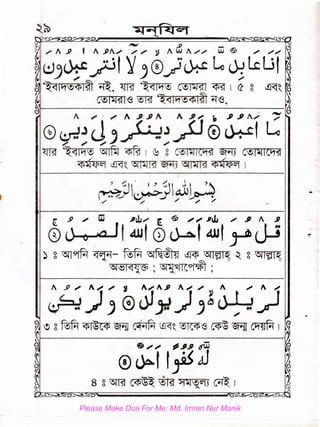 ২৯ মনযিল
عابد ما عبدتم ④ ولا انتم عبدون
‘ইবাদতকারী নই, যার ‘ইবাদত তোমরা কর। ৫ ঃ এবং
তোমরাও তার ‘ইবাদতকারী নও.
ما اعبد ⑤ لكم دينكم ولي دين ⑥
যার ‘ইবাদত আমি করি। ৬ ঃ তোমাদের জন্য তোমাদের
কর্মফল এবং আমার জন্য আমার কর্মফল।
بسم الله الرحمن الرحيم
قل هو الله احد ① الله الصمد ②
১ ঃ আপনি বলুন- তিনি আল্লাহ এক ২ ঃ আল্লাহ
অভাবমুক্ত ; অমুখাপেক্ষী ;
لم يلد ولم يولد ③ ولم يكن
৩ ঃ তিনি কাউকে জন্ম দেননি এবং তাকেও কেউ জন্ম দেয়নি।
له كفوا احد ④
৪ ঃ আর কেউই তাঁর সমতুল্য নেই।
Please Make Dua For Me: Md. Imran Nur Manik